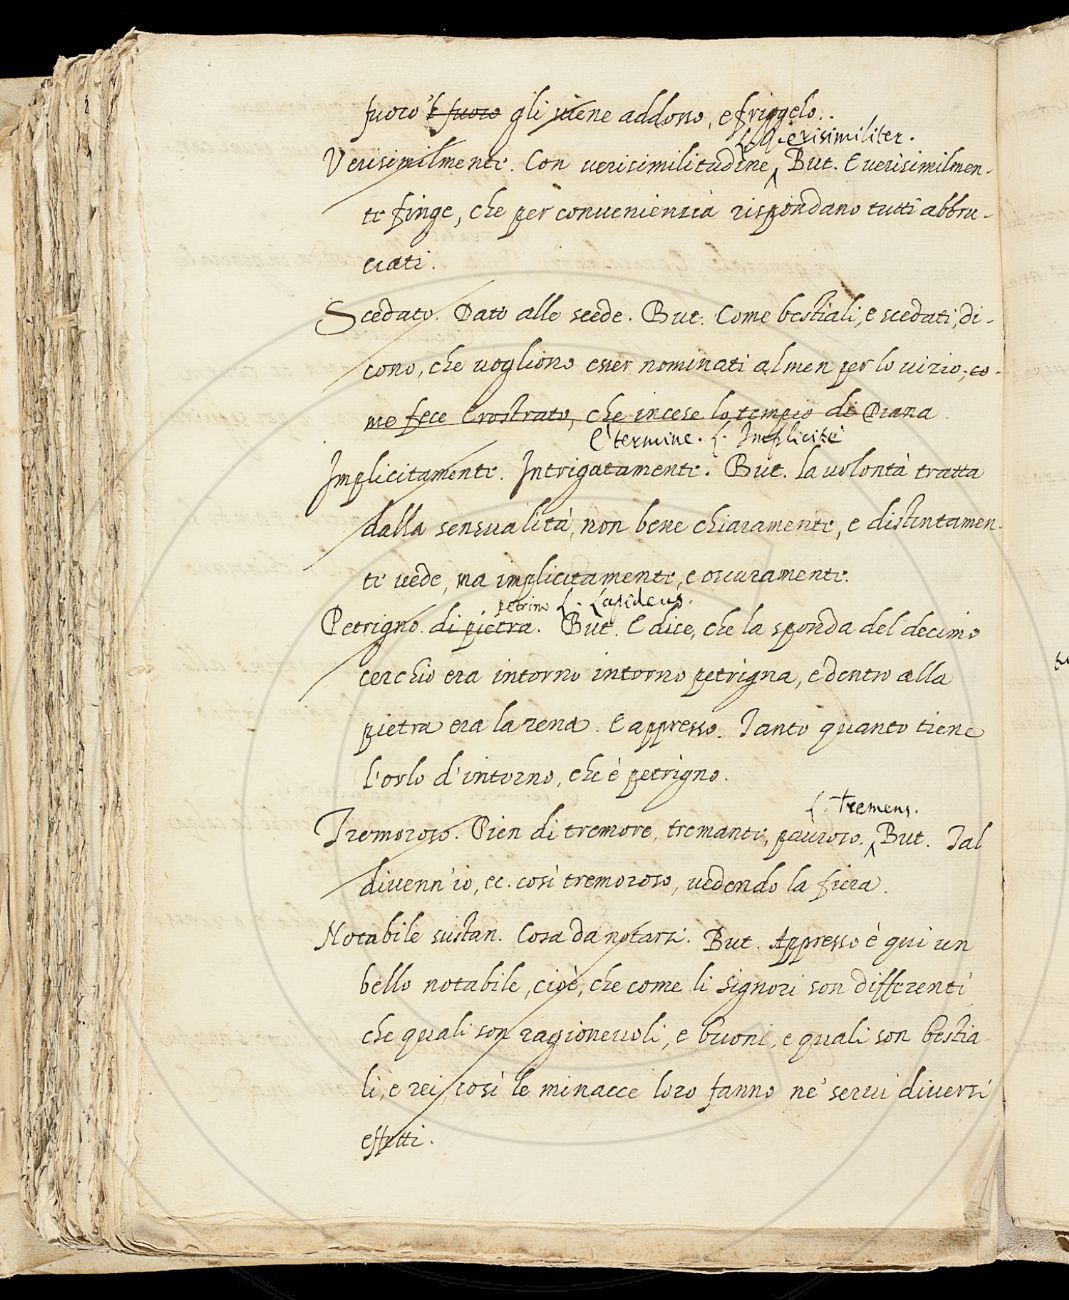 fuoro 'l fuoro gli viene addosso, e friggelo.
L. Verisimiliter.
Verisimilmente. Con verisimilitudine, But. E verisimilmen-
te finge, che per convenienzia rispondano tutti abbru-
ciati.
Scedato. Dato alle scede. But. Come bestiali, e scedati, di-
cono, che vogliono esser nominati almen per lo vizio, co-
me fece Erostrato, che incese lo tempio di Diana.
E' termine. L. Implicitè
Implicitamente. Intrigatamente. But. la volontà tratta
dalla sensualità, non bene chiaramente, e distintamen-
te vede, ma implicitamente, e oscuramente.
petrino L. Lapideus.
Petrigno. di pietra. But. E dice, che la sponda del decimo
cerchio era intorno intorno petrigna, e dentro alla
pietra era la rena. E appresso. Tanto quanto tiene
l'orlo d'intorno, che è petrigno.
L. Tremens.
Tremoroso. Pien di tremore, tremante, pauroso. But. Tal
divenn'io, ec. così tremoroso, vedendo la fiera.
Notabile sustan. Cosa da notarsi. But. Appresso è qui un
bello notabile, cioè, che come li signori son differenti
che quali son ragionevoli, e buoni, e quali son bestia
li, e rei, così le minacce loro fanno ne' servi diversi
effetti.